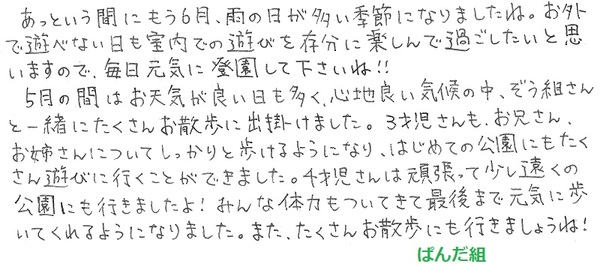 あっという間にもう6月、雨の日が多い季節になりましたね。お外
で遊べない日も室内での遊びを存分に楽しんで過ごしたいと思
いますので、毎日元気に登園して下さいね!!
5月の間はお天気が良い日も多く、心地良い気候の中、ぞう組さん
と一緒にたくさんお散歩に出掛けました。3才児さんも、お兄さん、
お姉さんについてしっかりと歩けるようになり、はじめての公園にもたく
さん遊びに行くことができました。4才児さんは頑張って少し遠くの
公園にも行きましたよ!みんな体力もついてきて最後まで元気に歩
いてくれるようになりました。また、たくさんお散歩にも行きましょうね!
ぱんだ組